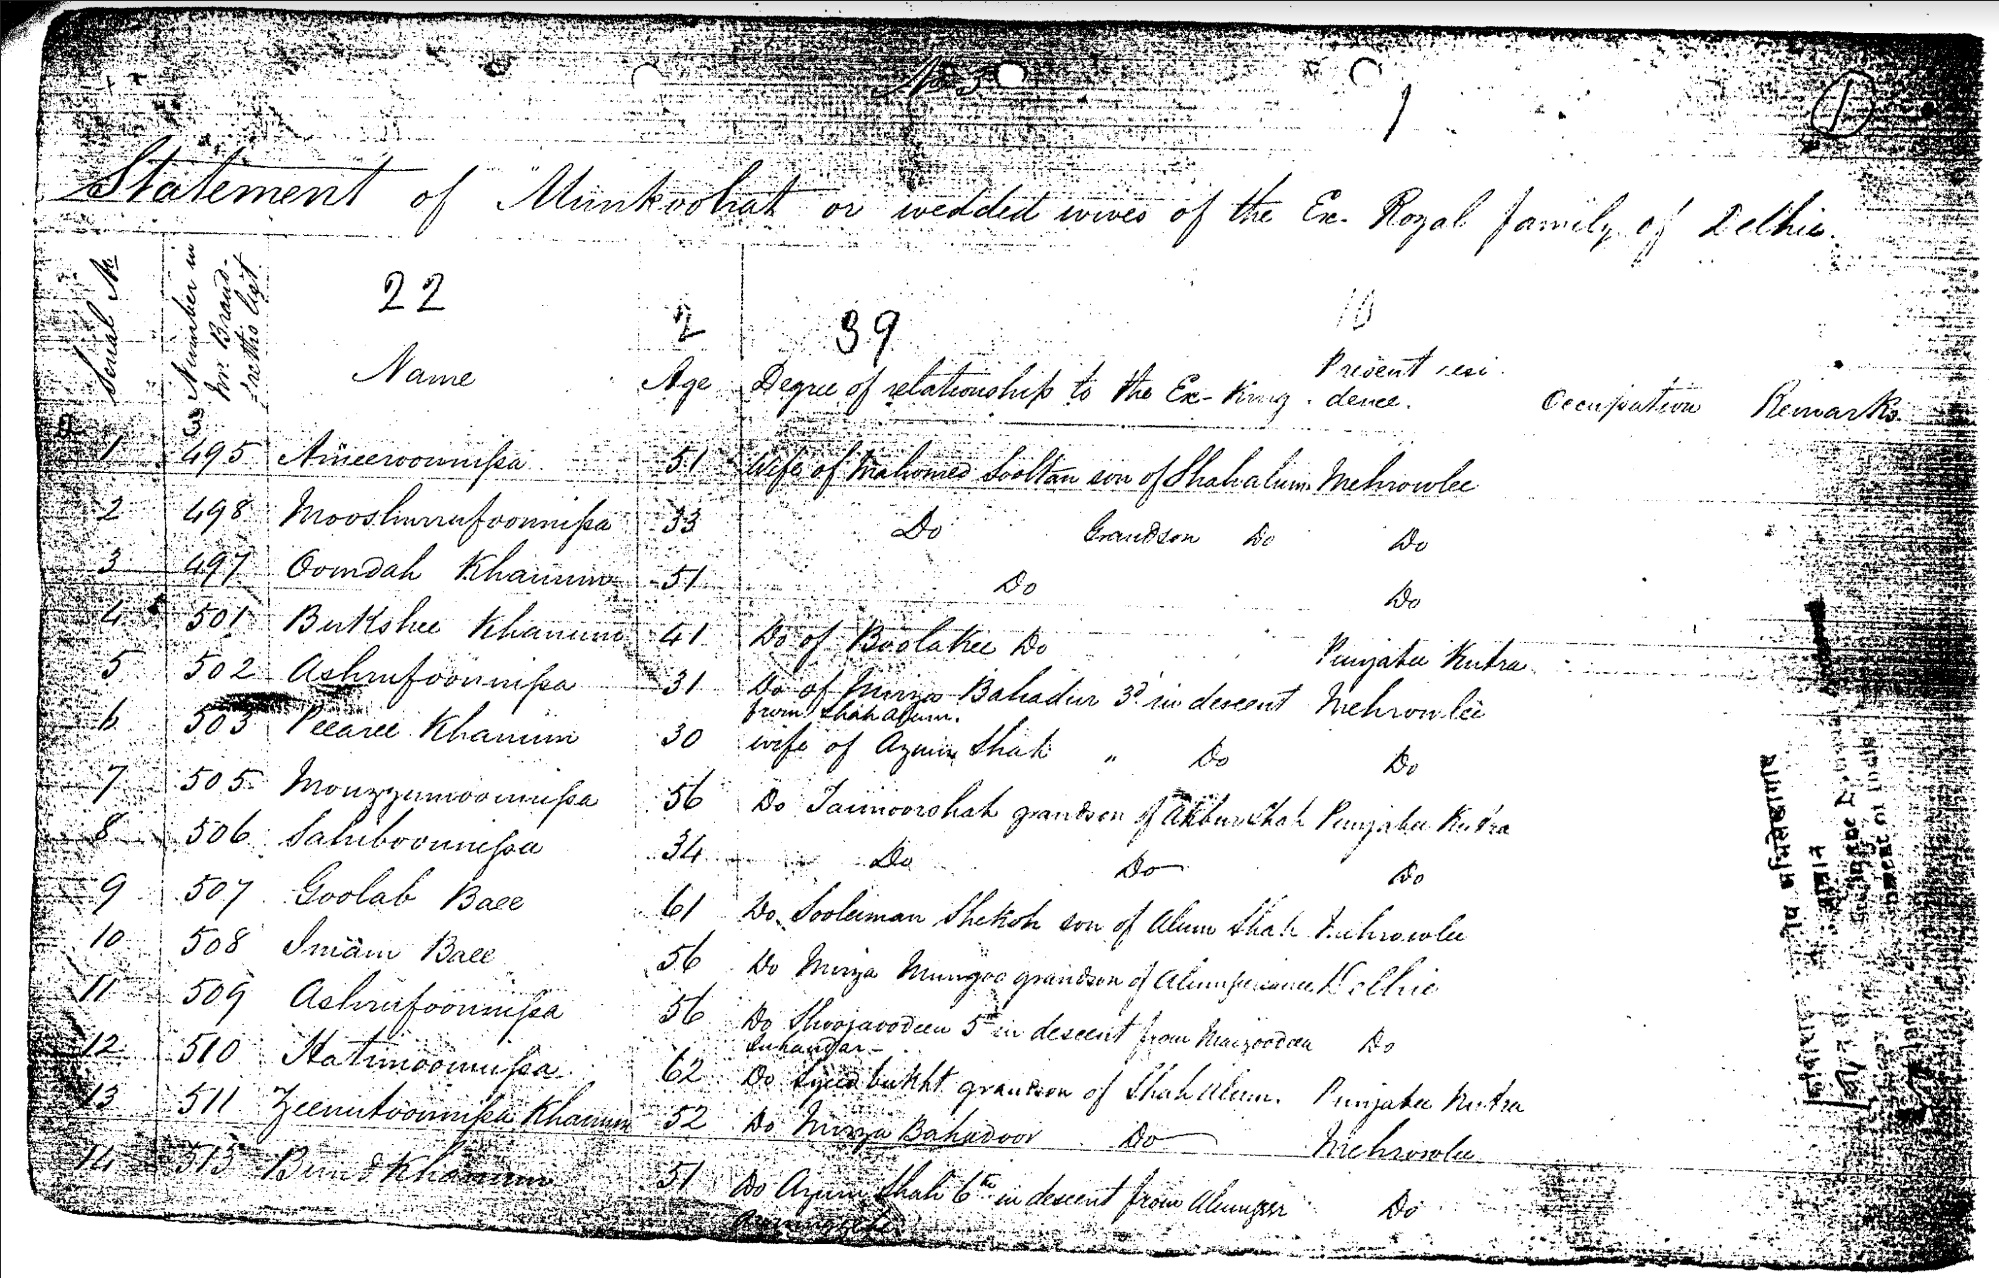 No 3
1
1
Statement of Munkoohat or wedded wives of the Ex-Royal family of Delhie.
Serial No
Number in Mr Brandreths list
22
Name
2
Age
39
Degree of relationship to the Ex-King
10
Present residence.
Occupation
Remarks
1 495 Ameeroonnissa 51 Wife of Mahomed Sooltan son of Shahalum Mehrowlee
2 498 Mooshurrufoonnissa 33 Do Grandson Do Do
3 497 Oomdah Khanum 51 Do Do
4 501 Bukshee Khanum 41 Do of Boolakee Do Punjabee Kutra
5 502 Ashrufoonnissa 31 Do of Mirza Bahadur 3d in descent Mehrowlee
from Shahalum.
6 503 Peearee Khanum 30 wife of Azum Shah " Do Do
7 505 Mouzzumoonnissa 56 Do Taimoorshah grandson of Akburshah Punjabee Kutra
8 506 Sahiboonnissa 34 Do Do Do
9 507 Goolab Baee 61 Do Sooleman Shekoh son of Alum Shah Mehrowlee
10 508 Imam Baee 56 Do Mirza Mungoo grandson of Delhie
11 509 Ashrufoonnissa 56 Do Shoojaoodeen 5th in descent from Maizoodeen Do
12 510 Hatimoonnissa 62 Do Syud bukht grandson of Shah Alum. Punjabee Kutra
13 511 Zeenutoonnissa Khanum 52 Do Mirza Bahadoor Do Mehrowlee
14 513 Khanum 51 Do Azum Shah 6th in descent from Alumgeer Do